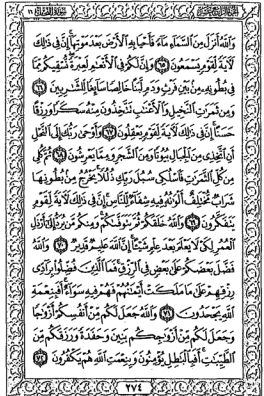 وَاللَّهُ أَنزَلَ مِنَ السَّمَاءِ مَاءً فَأَحْيَا بِهِ الْأَرْضَ بَعْدَ مَوْتِهَا إِنَّ فِي ذَٰلِكَ
لَآيَةً لِّقَوْمٍ يَسْمَعُونَ ٦٥ وَإِنَّ لَكُمْ فِي الْأَنْعَامِ لَعِبْرَةً نُّسْقِيكُم مِّمَّا
فِي بُطُونِهِ مِن بَيْنِ فَرْثٍ وَدَمٍ لَّبَنًا خَالِصًا سَائِغًا لِّلشَّارِبِينَ ٦٦
وَمِن ثَمَرَاتِ النَّخِيلِ وَالْأَعْنَابِ تَتَّخِذُونَ مِنْهُ سَكَرًا وَرِزْقًا
حَسَنًا إِنَّ فِي ذَٰلِكَ لَآيَةً لِّقَوْمٍ يَعْقِلُونَ ٦٧ وَأَوْحَىٰ رَبُّكَ إِلَى النَّحْلِ
أَنِ اتَّخِذِي مِنَ الْجِبَالِ بُيُوتًا وَمِنَ الشَّجَرِ وَمِمَّا يَعْرِشُونَ ٦٨ ثُمَّ كُلِي
مِن كُلِّ الثَّمَرَاتِ فَاسْلُكِي سُبُلَ رَبِّكِ ذُلُلًا يَخْرُجُ مِن بُطُونِهَا
شَرَابٌ مُّخْتَلِفٌ أَلْوَانُهُ فِيهِ شِفَاءٌ لِّلنَّاسِ إِنَّ فِي ذَٰلِكَ لَآيَةً لِّقَوْمٍ
يَتَفَكَّرُونَ ٦٩ وَاللَّهُ خَلَقَكُمْ ثُمَّ يَتَوَفَّاكُمْ وَمِنكُم مَّن يُرَدُّ إِلَىٰ أَرْذَلِ
الْعُمُرِ لِكَيْ لَا يَعْلَمَ بَعْدَ عِلْمٍ شَيْئًا إِنَّ اللَّهَ عَلِيمٌ قَدِيرٌ ٧٠ وَاللَّهُ
فَضَّلَ بَعْضَكُمْ عَلَىٰ بَعْضٍ فِي الرِّزْقِ فَمَا الَّذِينَ فُضِّلُوا بِرَادِّي
رِزْقِهِمْ عَلَىٰ مَا مَلَكَتْ أَيْمَانُهُمْ فَهُمْ فِيهِ سَوَاءٌ أَفَبِنِعْمَةِ
اللَّهِ يَجْحَدُونَ ٧١ وَاللَّهُ جَعَلَ لَكُم مِّنْ أَنفُسِكُمْ أَزْوَاجًا
وَجَعَلَ لَكُم مِّنْ أَزْوَاجِكُم بَنِينَ وَحَفَدَةً وَرَزَقَكُم مِّنَ
الطَّيِّبَاتِ أَفَبِالْبَاطِلِ يُؤْمِنُونَ وَبِنِعْمَتِ اللَّهِ هُمْ يَكْفُرُونَ ٧٢
٢٧٤